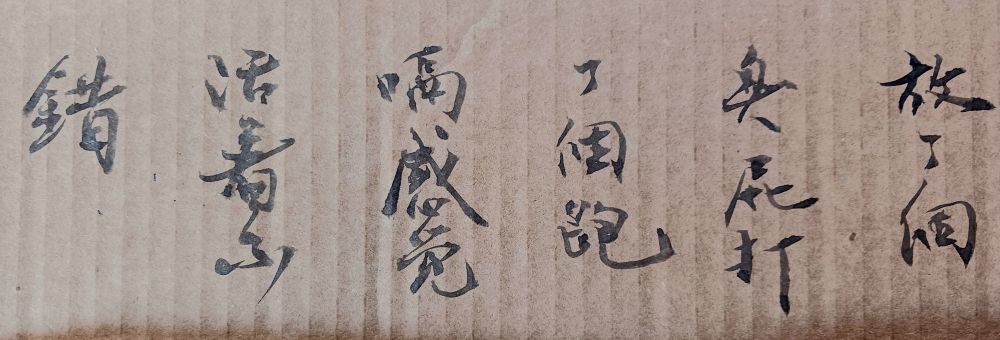 放了個
臭屁打
了個飽
嗝感觉
活着不
錯